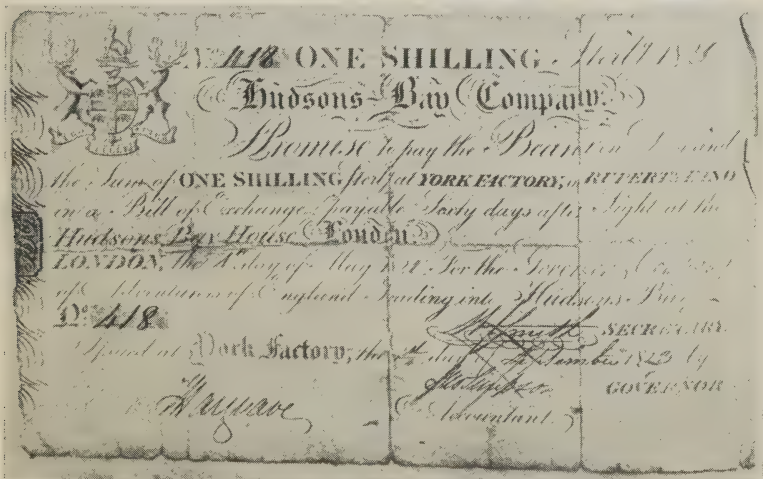 No. 418 ONE SHILLING Sterlg
Hudsons Bay Company.
Promise to pay the Bearer on Demand
the Sum of ONE SHILLING Sterlg at YORK FACTORY, in RUPERTS LAND
in a Bill of Exchange Payable Sixty days after Sight at the
Hudsons Bay House London.
LONDON, the day of May For the Governor & Company
of Adventurers of England trading into Hudsons Bay
No. 418 Smith SECRETARY.
Issued at York Factory, the day September by
Simpson GOVERNOR
Hargrave Accountant.